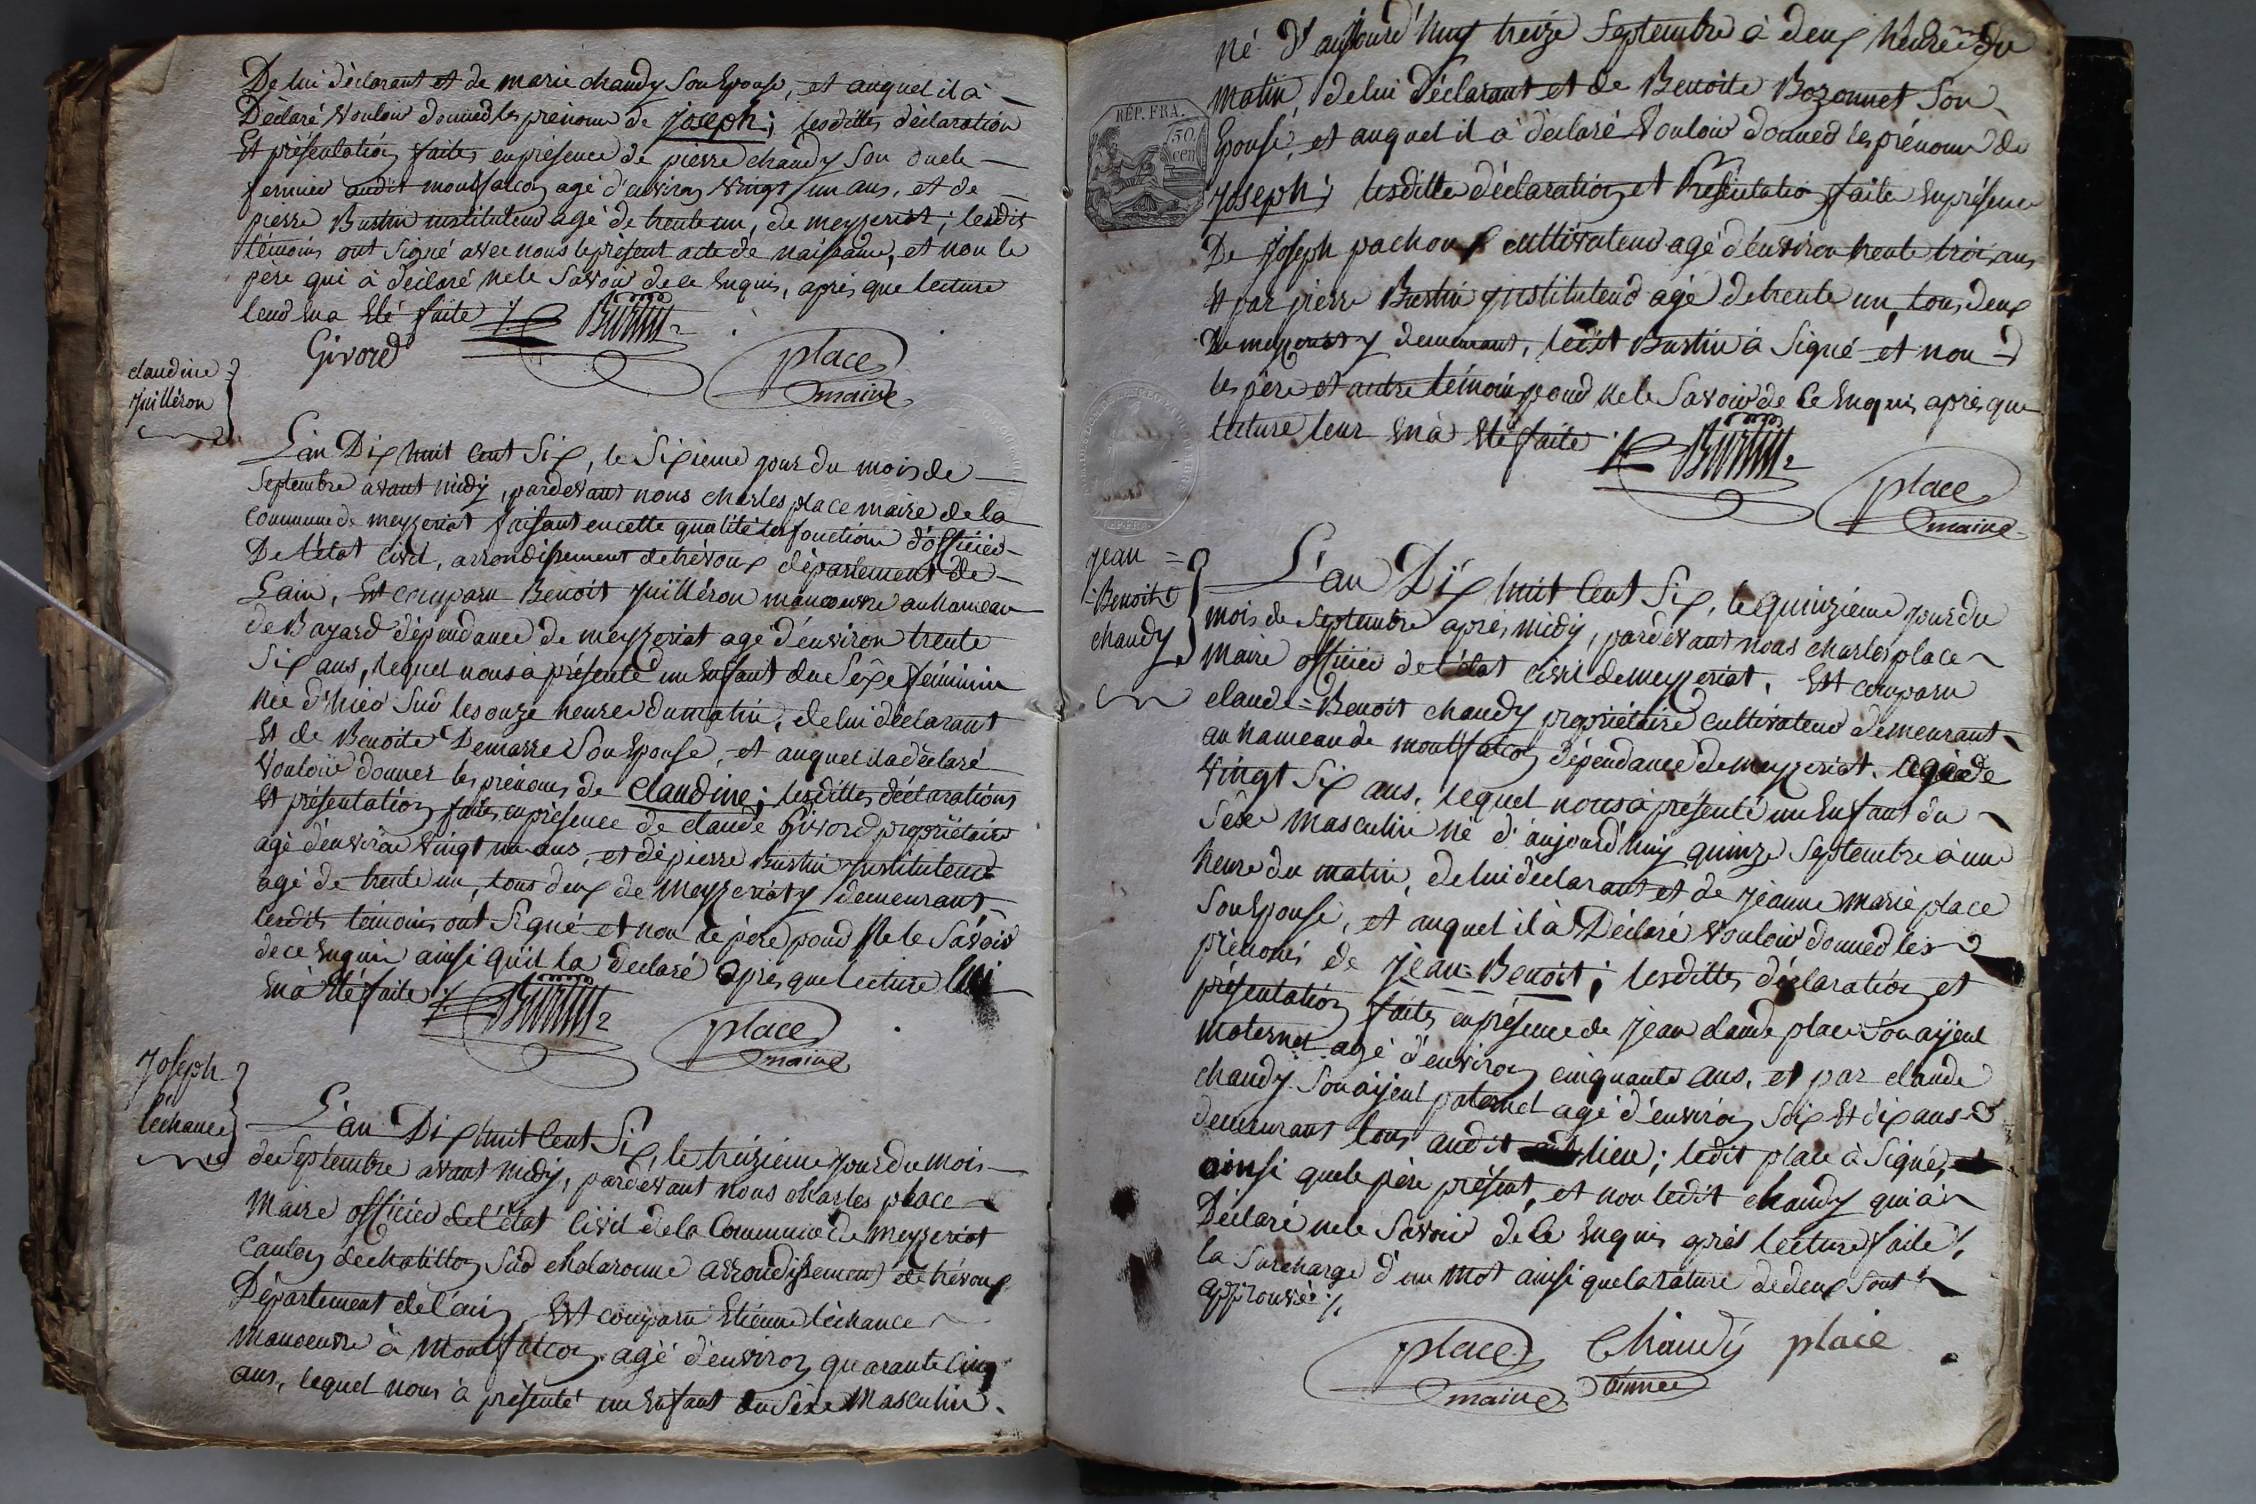 De lui déclarant et de marie chaudy Son Epouse, et auquel il à
Déclaré Vouloir donner les prénoms de joseph; lesdittes déclaration
Et présentation faites en présence de pierre chaudy Son oncle
fermier audit montfalcon agé d'environ Vingt un ans, et de
pierre Burtin instituteur agé de trente un, de meyzeriat; lesdits
témoins ont Signé avec nous le présent acte de naissance, et non le
père qui à déclaré ne le Savoir de ce Enquis, après que lecture
leur En a Eté faite ./. Burtin
Givord
place
maire
claudine
Juilléron
L'an Dix huit Cent Six, le Sixième jour du mois de
Septembre avant midy, pardevant nous charles place maire de la
Commune de meyzeriat faisant en cette qualité les fonctions d'officier
De l'état Civil, arrondissement de trévoux département de
L'ain, Est comparu Benoit Juilléron manoeuvre au hameau
de Bazard dépendance de meyzeriat agé d'environ trente
Six ans, lequel nous à présenté un Enfant du Séxe féminin
née d'hier Sur les onze heures du matin, de lui déclarant
Et de Benoite Demarre Son Epouse, et auquel il a déclaré
Vouloir donner les prénoms de Claudine; lesdittes déclarations
Et présentation faites en présence de claude Givord propriétaire
agé d'environ Vingt un ans, et de pierre Burtin Instituteur
agé de trente un, tous deux de meyzeriat y demeurant
lesdits témoins ont Signé et non le père pour Ne le Savoir
de ce Enquis ainsi qu'il l'a déclaré après que lecture lui
En à Eté faite ./. Burtin
place
maire
Joseph
léchance
L'an Dix huit Cent Six, le treizième jour du mois
de Septembre avant midy, pardevant nous charles place
Maire officier de l'état Civil de la Commune de meyzeriat
Canton de chatillon Sur chalaronne arrondissement de trévoux
Département de l'ain, Est comparu Etienne léchance
manoeuvre à Montfalcon agé d'environ quarante Cinq
ans, lequel nous à présenté un Enfant du Sexe Masculin
né d'aujourd'huy treize Septembre à deux heures du
RÉP. FRA.
50
cen
matin, de lui déclarant et de Benoite Bozonnet Son
Epouse, et auquel il à déclaré Vouloir donner les prénoms de
Joseph; lesditte déclaration et Présentation faite en présence
De Joseph pachoux cultivateur agé d'environ trente trois ans
Et par pierre Burtin instituteur agé de trente un, tous deux
De meyzeriat y demeurant, ledit Burtin à Signé et non
les père et autre témoin pour ne le Savoir de Ce Enquis après que
lecture leur En à Eté faite ./. Burtin
place
maire
RÉP. FRA.
jean
Benoit
chaudy
L'an Dix huit Cent Six, le quinzième jour du
mois de Septembre après midy, pardevant nous charles place
Maire officier de l'état Civil de meyzeriat, Est comparu
claude Benoit chaudy propriétaire Cultivateur demeurant
au hameau de montfalcon dépendance de meyzeriat agé de
Vingt Six ans, lequel nous à présenté un Enfant du
Séxe Masculin né d'aujourd'huy quinze Septembre à une
heure du matin, de lui déclarant et de Jeanne marie place
Son Epouse, et auquel il à Déclaré Vouloir donner les
prénoms de Jean Benoit; lesdittes déclaration et
présentation faites en présence de Jean claude place Son aijeul
Maternel agé d'environ cinquante ans, et par claude
chaudy Son aijeul paternel agé d'environ Soix Et dix ans
demeurant tous audit lieu; ledit place à Signé,
ainsi que le père présent, et non ledit chaudy qui à
Déclaré ne le Savoir de Ce Enquis après lecture faite ./.
la Surcharge d'un Mot ainsi que la rature de deux Sont
approuvés ./.
place Chaudy place
maire